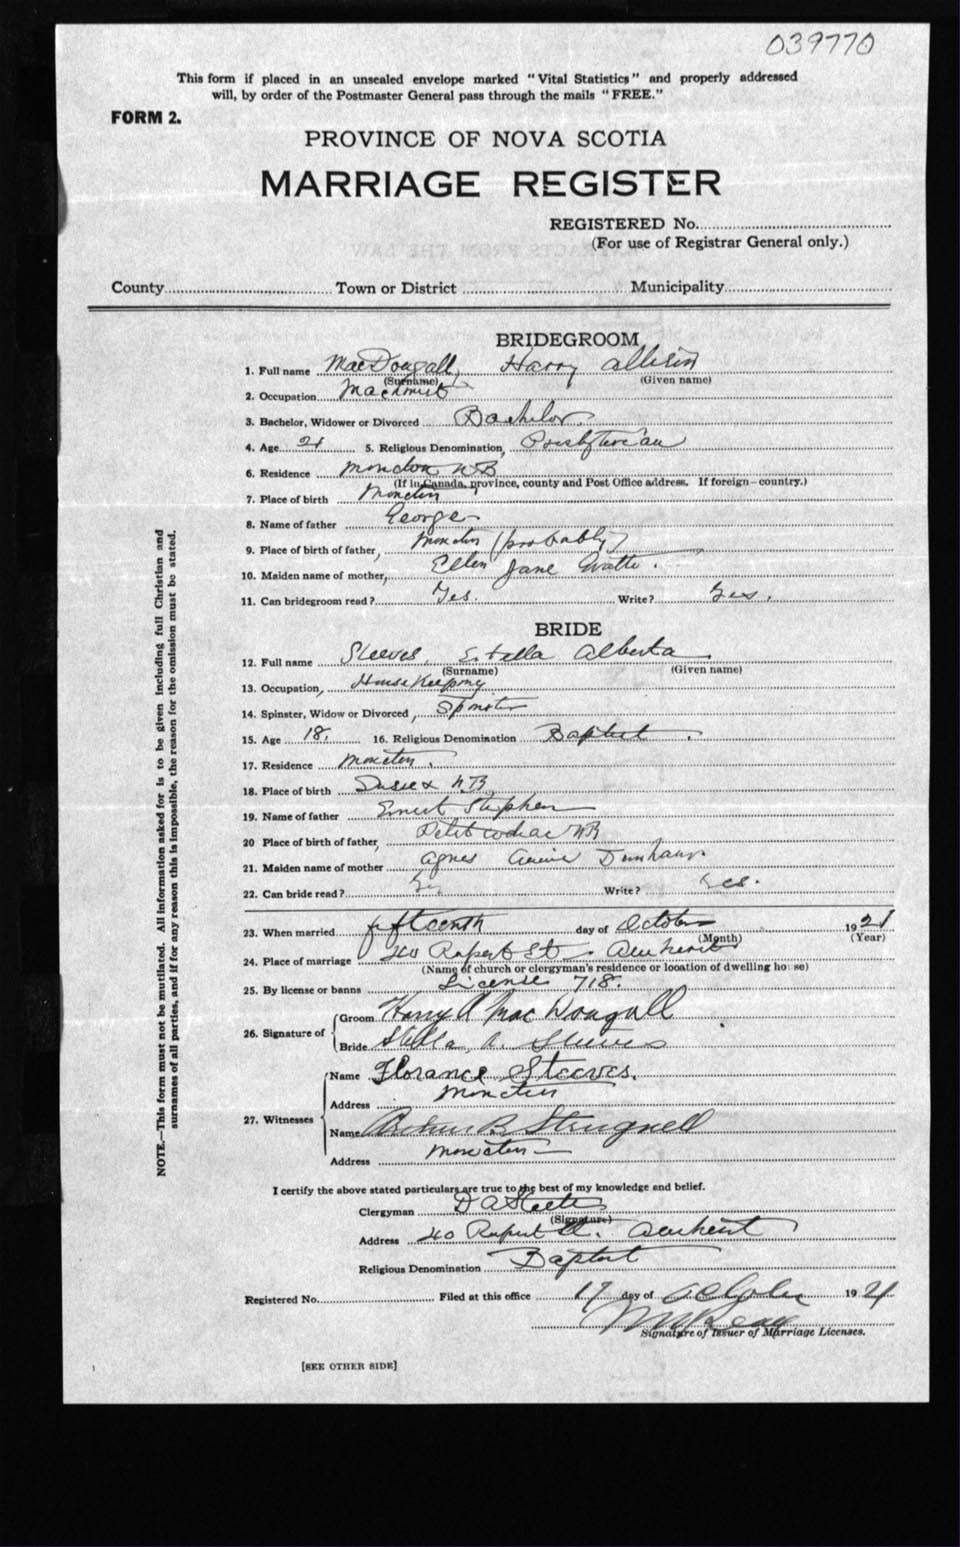 039770
This form if placed in an unsealed envelope marked "Vital Statistics" and properly addressed
will, by order of the Postmaster General pass through the mails "FREE."
FORM 2.
PROVINCE OF NOVA SCOTIA
MARRIAGE REGISTER
REGISTERED No.
(For use of Registrar General only.)
County Town or District Municipality
BRIDEGROOM
1. Full name MacDougall, Harry Allison
(Surname) (Given name)
2. Occupation Machinist
3. Bachelor, Widower or Divorced Bachelor.
4. Age 21 5. Religious Denomination, Presbyterian
6. Residence Moncton NB
(If in Canada, province, county and Post Office address. If foreign—country.)
7. Place of birth Moncton
8. Name of father George
9. Place of birth of father, Moncton (probably)
10. Maiden name of mother, Ellen Jane
11. Can bridegroom read? Yes. Write? Yes.
BRIDE
12. Full name Steeves, Estella Alberta
(Surname) (Given name)
13. Occupation, Housekeeping
14. Spinster, Widow or Divorced, Spinster
15. Age 18. 16. Religious Denomination Baptist.
17. Residence Moncton.
18. Place of birth Sussex N.B.
19. Name of father Ernest Stephen
20 Place of birth of father, Petitcodiac NB
21. Maiden name of mother Agnes Dunham
22. Can bride read? Yes Write? Yes.
23. When married fifteenth day of October 1921
(Month) (Year)
24. Place of marriage 40 Rupert St. Amherst
(Name of church or clergyman's residence or location of dwelling house)
25. By license or banns License 718.
26. Signature of
Groom Harry A MacDougall
Bride Stella A. Steeves
27. Witnesses
Name Florance Steeves.
Address Moncton
Name Arthur B. Strugnell
Address Moncton
I certify the above stated particulars are true to the best of my knowledge and belief.
Clergyman D A Steele
(Signature)
Address 40 Rupert St. Amherst
Religious Denomination Baptist
Registered No. Filed at this office 17 day of October 1921
Signature of Issuer of Marriage Licenses.
[SEE OTHER SIDE]
NOTE.—This form must not be mutilated. All information asked for is to be given including full Christian and
surnames of all parties, and if for any reason this is impossible, the reason for the omission must be stated.